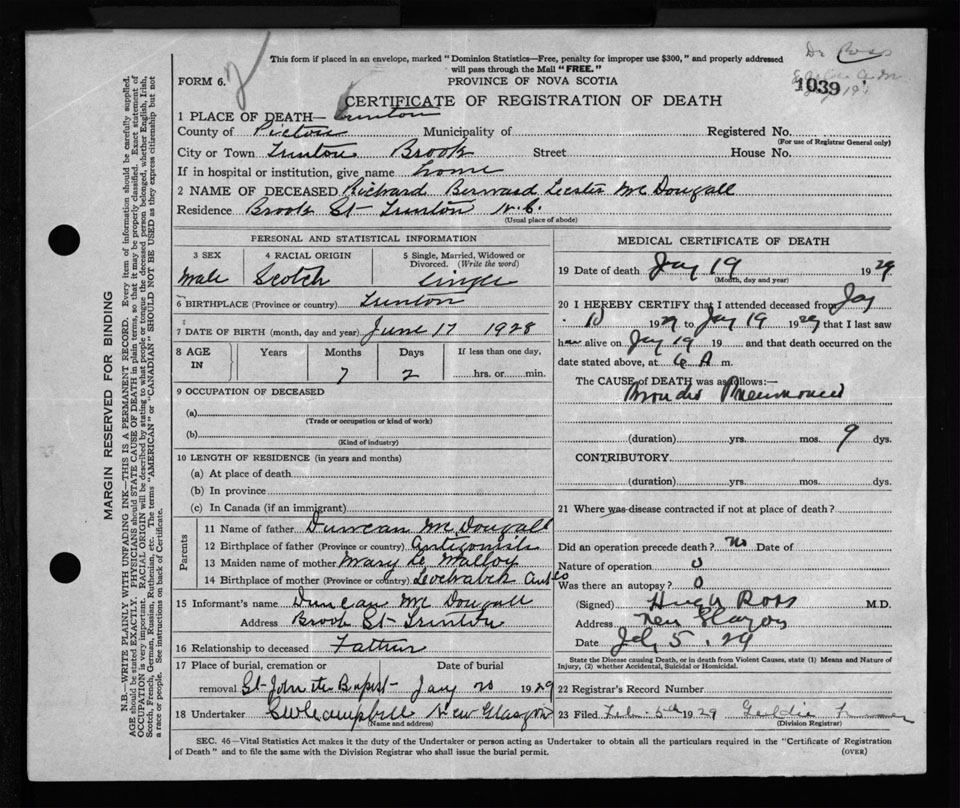 This form if placed in an envelope, marked "Dominion Statistics—Free, penalty for improper use $300," and properly addressed
will pass through the Mail "FREE."
FORM 6.
PROVINCE OF NOVA SCOTIA
1039
CERTIFICATE OF REGISTRATION OF DEATH
1 PLACE OF DEATH— Trenton
County of Pictou Municipality of Registered No.
(For use of Registrar General only)
City or Town Trenton Brook Street House No.
If in hospital or institution, give name home
2 NAME OF DECEASED Richard Bernard Lester McDougall
Residence Brook St- Trenton N.S.
(Usual place of abode)
PERSONAL AND STATISTICAL INFORMATION
3 SEX 4 RACIAL ORIGIN 5 Single, Married, Widowed or Divorced. (Write the word)
Male Scotch Single
6 BIRTHPLACE (Province or country) Trenton
7 DATE OF BIRTH (month, day and year) June 17 1928
8 AGE IN Years Months Days If less than one day,
7 2 hrs. or min.
9 OCCUPATION OF DECEASED
(a)
(Trade or occupation or kind of work)
(b)
(Kind of industry)
10 LENGTH OF RESIDENCE (in years and months)
(a) At place of death
(b) In province
(c) In Canada (if an immigrant)
Parents
11 Name of father Duncan McDougall
12 Birthplace of father (Province or country) Antigonish
13 Maiden name of mother Mary
14 Birthplace of mother (Province or country)
15 Informant's name Duncan McDougall
Address Brook St- Trenton
16 Relationship to deceased Father
17 Place of burial, cremation or removal Date of burial
St- John the Baptist- Jany 20 1929
18 Undertaker Campbell New Glasgow
(Name and address)
MEDICAL CERTIFICATE OF DEATH
19 Date of death Jay 19 1929
(Month, day and year)
20 I HEREBY CERTIFY that I attended deceased from Jay
1929 to Jay 19 1929 that I last saw
h alive on Jay 19 19 and that death occurred on the
date stated above, at 6 A m.
The CAUSE of DEATH was as follows:—
Broncho Pneumonia
(duration) yrs. mos. 9 dys.
CONTRIBUTORY
(duration) yrs. mos. dys.
21 Where was disease contracted if not at place of death?
Did an operation precede death? No Date of
Nature of operation 0
Was there an autopsy? 0
(Signed) Hugh Ross M.D.
Address New Glasgow
Date 5.29
State the Disease causing Death, or in death from Violent Causes, state (1) Means and Nature of
Injury, (2) whether Accidental, Suicidal or Homicidal.
22 Registrar's Record Number
23 Filed Feb. 5th 1929
(Division Registrar)
SEC. 46—Vital Statistics Act makes it the duty of the Undertaker or person acting as Undertaker to obtain all the particulars required in the "Certificate of Registration
of Death" and to file the same with the Division Registrar who shall issue the burial permit.
(OVER)
MARGIN RESERVED FOR BINDING
N.B.—WRITE PLAINLY WITH UNFADING INK—THIS IS A PERMANENT RECORD. Every item of information should be carefully supplied.
AGE should be stated EXACTLY. PHYSICIANS should STATE CAUSE OF DEATH in plain terms, so that it may be properly classified. Exact statement of
OCCUPATION is very important. RACIAL ORIGIN will be described by stating to what people or tongue the deceased person belonged, whether English, Irish,
Scotch, French, German, Russian, Ruthenian, etc. The terms "AMERICAN" or "CANADIAN" SHOULD NOT BE USED as they express citizenship but not
a race or people. See instructions on back of Certificate.